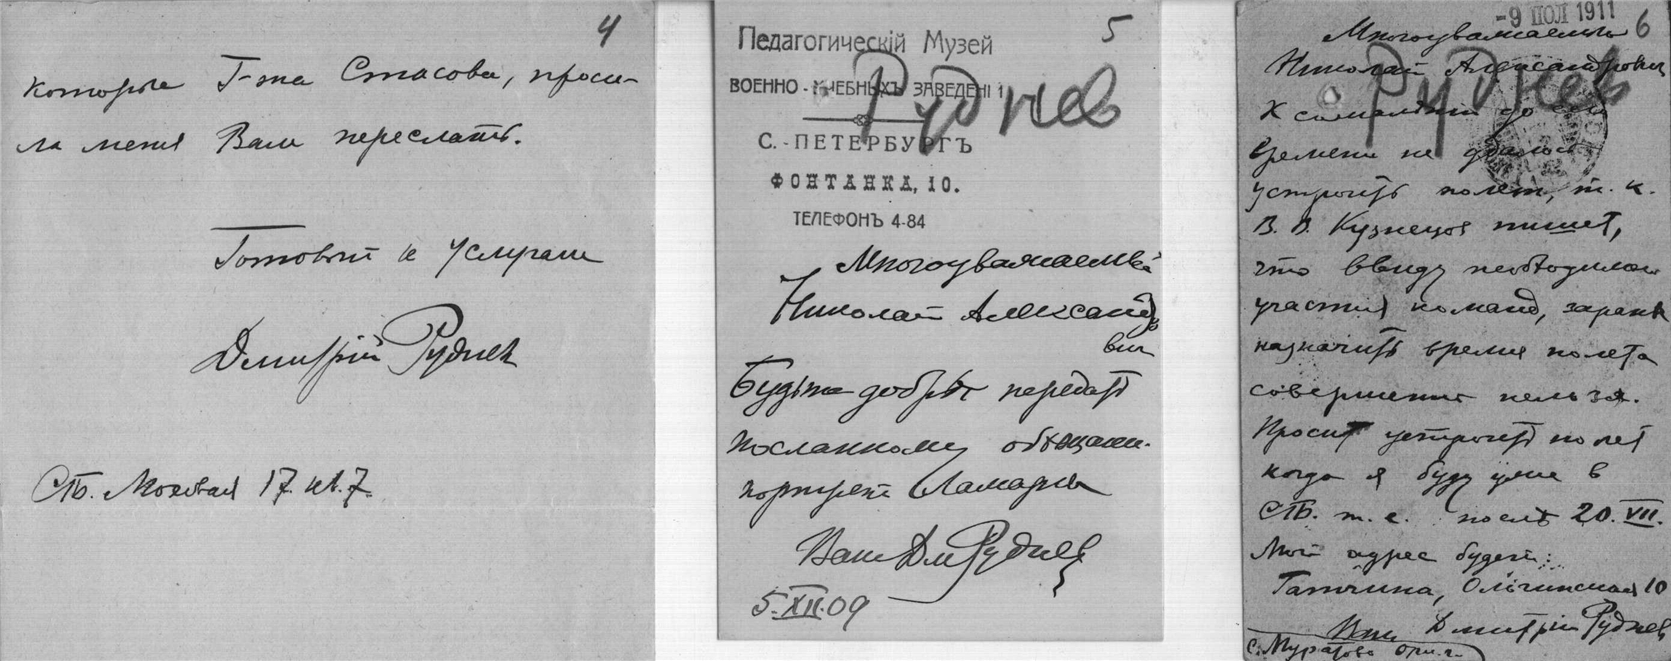 4
которые Г-жа Стасова, проси-
ла меня Вам переслать.
Готовый к услугам
Дмитрій Рудневъ
СПб. Моховая 17. кв. 7.
5
Педагогическій Музей
ВОЕННО-УЧЕБНЫХЪ ЗАВЕДЕНІЙ
Руднев
С.-ПЕТЕРБУРГЪ
ФОНТАНКА, 10.
ТЕЛЕФОНЪ 4-84
Многоуважаемый
Николай Александро
вич
Будьте добры передать
посланному обещанн.
портрет Ламарка
Ваш Дм Руднев
5.XII.09
-9 ПОЛ 1911
6
Многоуважаемый
Николай Александрович
Руднев
К сожалѣнію до сих
времени не удалось
устроить полет, т. к.
В. В. Кузнецов пишет,
что ввиду необходимой
участія команд, заранѣе
назначить время полета
совершенно нельзя.
Просит устроить полет
когда я буду уже в
СПб. т. е. послѣ 20. VII.
Мой адрес будет:
Гатчина, Ольгинская 10
Ваш Дмитрій Руднев